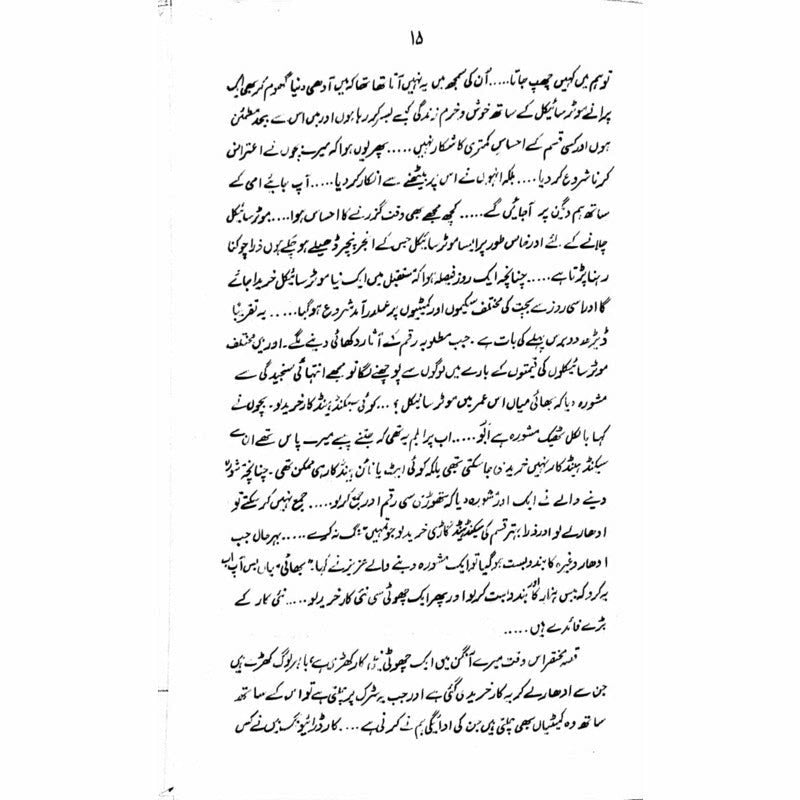 ۱۵
تو ہم میں کہیں چھپ جاتا..... اُن کی سمجھ میں یہ نہیں آتا تھا کہ میں آدھی دنیا گھوم کر بھی ایک
پرانے موٹر سائیکل کے ساتھ خوش و خرم زندگی کیسے بسر کر رہا ہوں اور میں اس سے بیحد مطمئن
ہوں اور کسی قسم کے احساسِ کمتری کا شکار نہیں..... پھر یوں ہوا کہ میرے بچوں نے اعتراض
کرنا شروع کر دیا.... بلکہ انہوں نے اس پر بیٹھنے سے انکار کر دیا..... آپ جائیے امی کے
ساتھ ہم ویگن پر آ جائیں گے..... کچھ مجھے بھی وقت گزرنے کا احساس ہوا.... موٹر سائیکل
چلانے کے لئے اور خاص طور پر ایسا موٹر سائیکل جس کے انجر پنجر ڈھیلے ہو چکے ہوں ذرا چوکنا
رہنا پڑتا ہے..... چنانچہ ایک روز فیصلہ ہوا کہ مستقبل میں ایک نیا موٹر سائیکل خریدا جائے
گا اور اسی روز سے بچت کی مختلف سکیموں اور کمیٹیوں پر عملدرآمد شروع ہو گیا..... یہ تقریباً
ڈیڑھ دو برس پہلے کی بات ہے۔ جب مطلوبہ رقم کے آثار دکھائی دینے لگے۔ اور میں مختلف
موٹر سائیکلوں کی قیمتوں کے بارے میں لوگوں سے پوچھنے لگا تو مجھے انتہائی سنجیدگی سے
مشورہ دیا کہ بھائی میاں اس عمر میں موٹر سائیکل؟... کوئی سیکنڈ ہینڈ کار خرید لو۔ بچوں نے
کہا بالکل ٹھیک مشورہ ہے ابّو..... اب پرابلم یہ تھی کہ جتنے پیسے میرے پاس تھے ان سے
سیکنڈ ہینڈ کار نہیں خریدی جا سکتی تھی بلکہ کوئی ایٹ یا نائن ہینڈ کار ہی ممکن تھی۔ چنانچہ مشورہ
دینے والے نے ایک اور مشورہ دیا کہ تھوڑی سی رقم اور جمع کر لو..... جمع نہیں کر سکتے تو
ادھار لے لو اور ذرا بہتر قسم کی سیکنڈ ہینڈ گاڑی خرید لو جو تمہیں تنگ نہ کرے..... بہرحال جب
ادھار وغیرہ کا بندوبست ہو گیا تو ایک مشورہ دینے والے عزیز نے کہا "بھائی میاں بس آپ اب
یہ کرو کہ بیس ہزار کا اور بندوبست کر لو اور پھر ایک چھوٹی سی نئی کار خرید لو..... نئی کار کے
بڑے فائدے ہیں.....
قصہ مختصر اس وقت میرے آنگن میں ایک چھوٹی کار کھڑی ہے باہر لوگ کھڑے ہیں
جن سے ادھار لے کر یہ کار خریدی گئی ہے اور جب یہ سڑک پر چلتی ہے تو اس کے ساتھ
ساتھ وہ کمیٹیاں بھی چلتی ہیں جن کی ادائیگی ہم نے کرنی ہے.... کار ڈرائیو میں نے کس